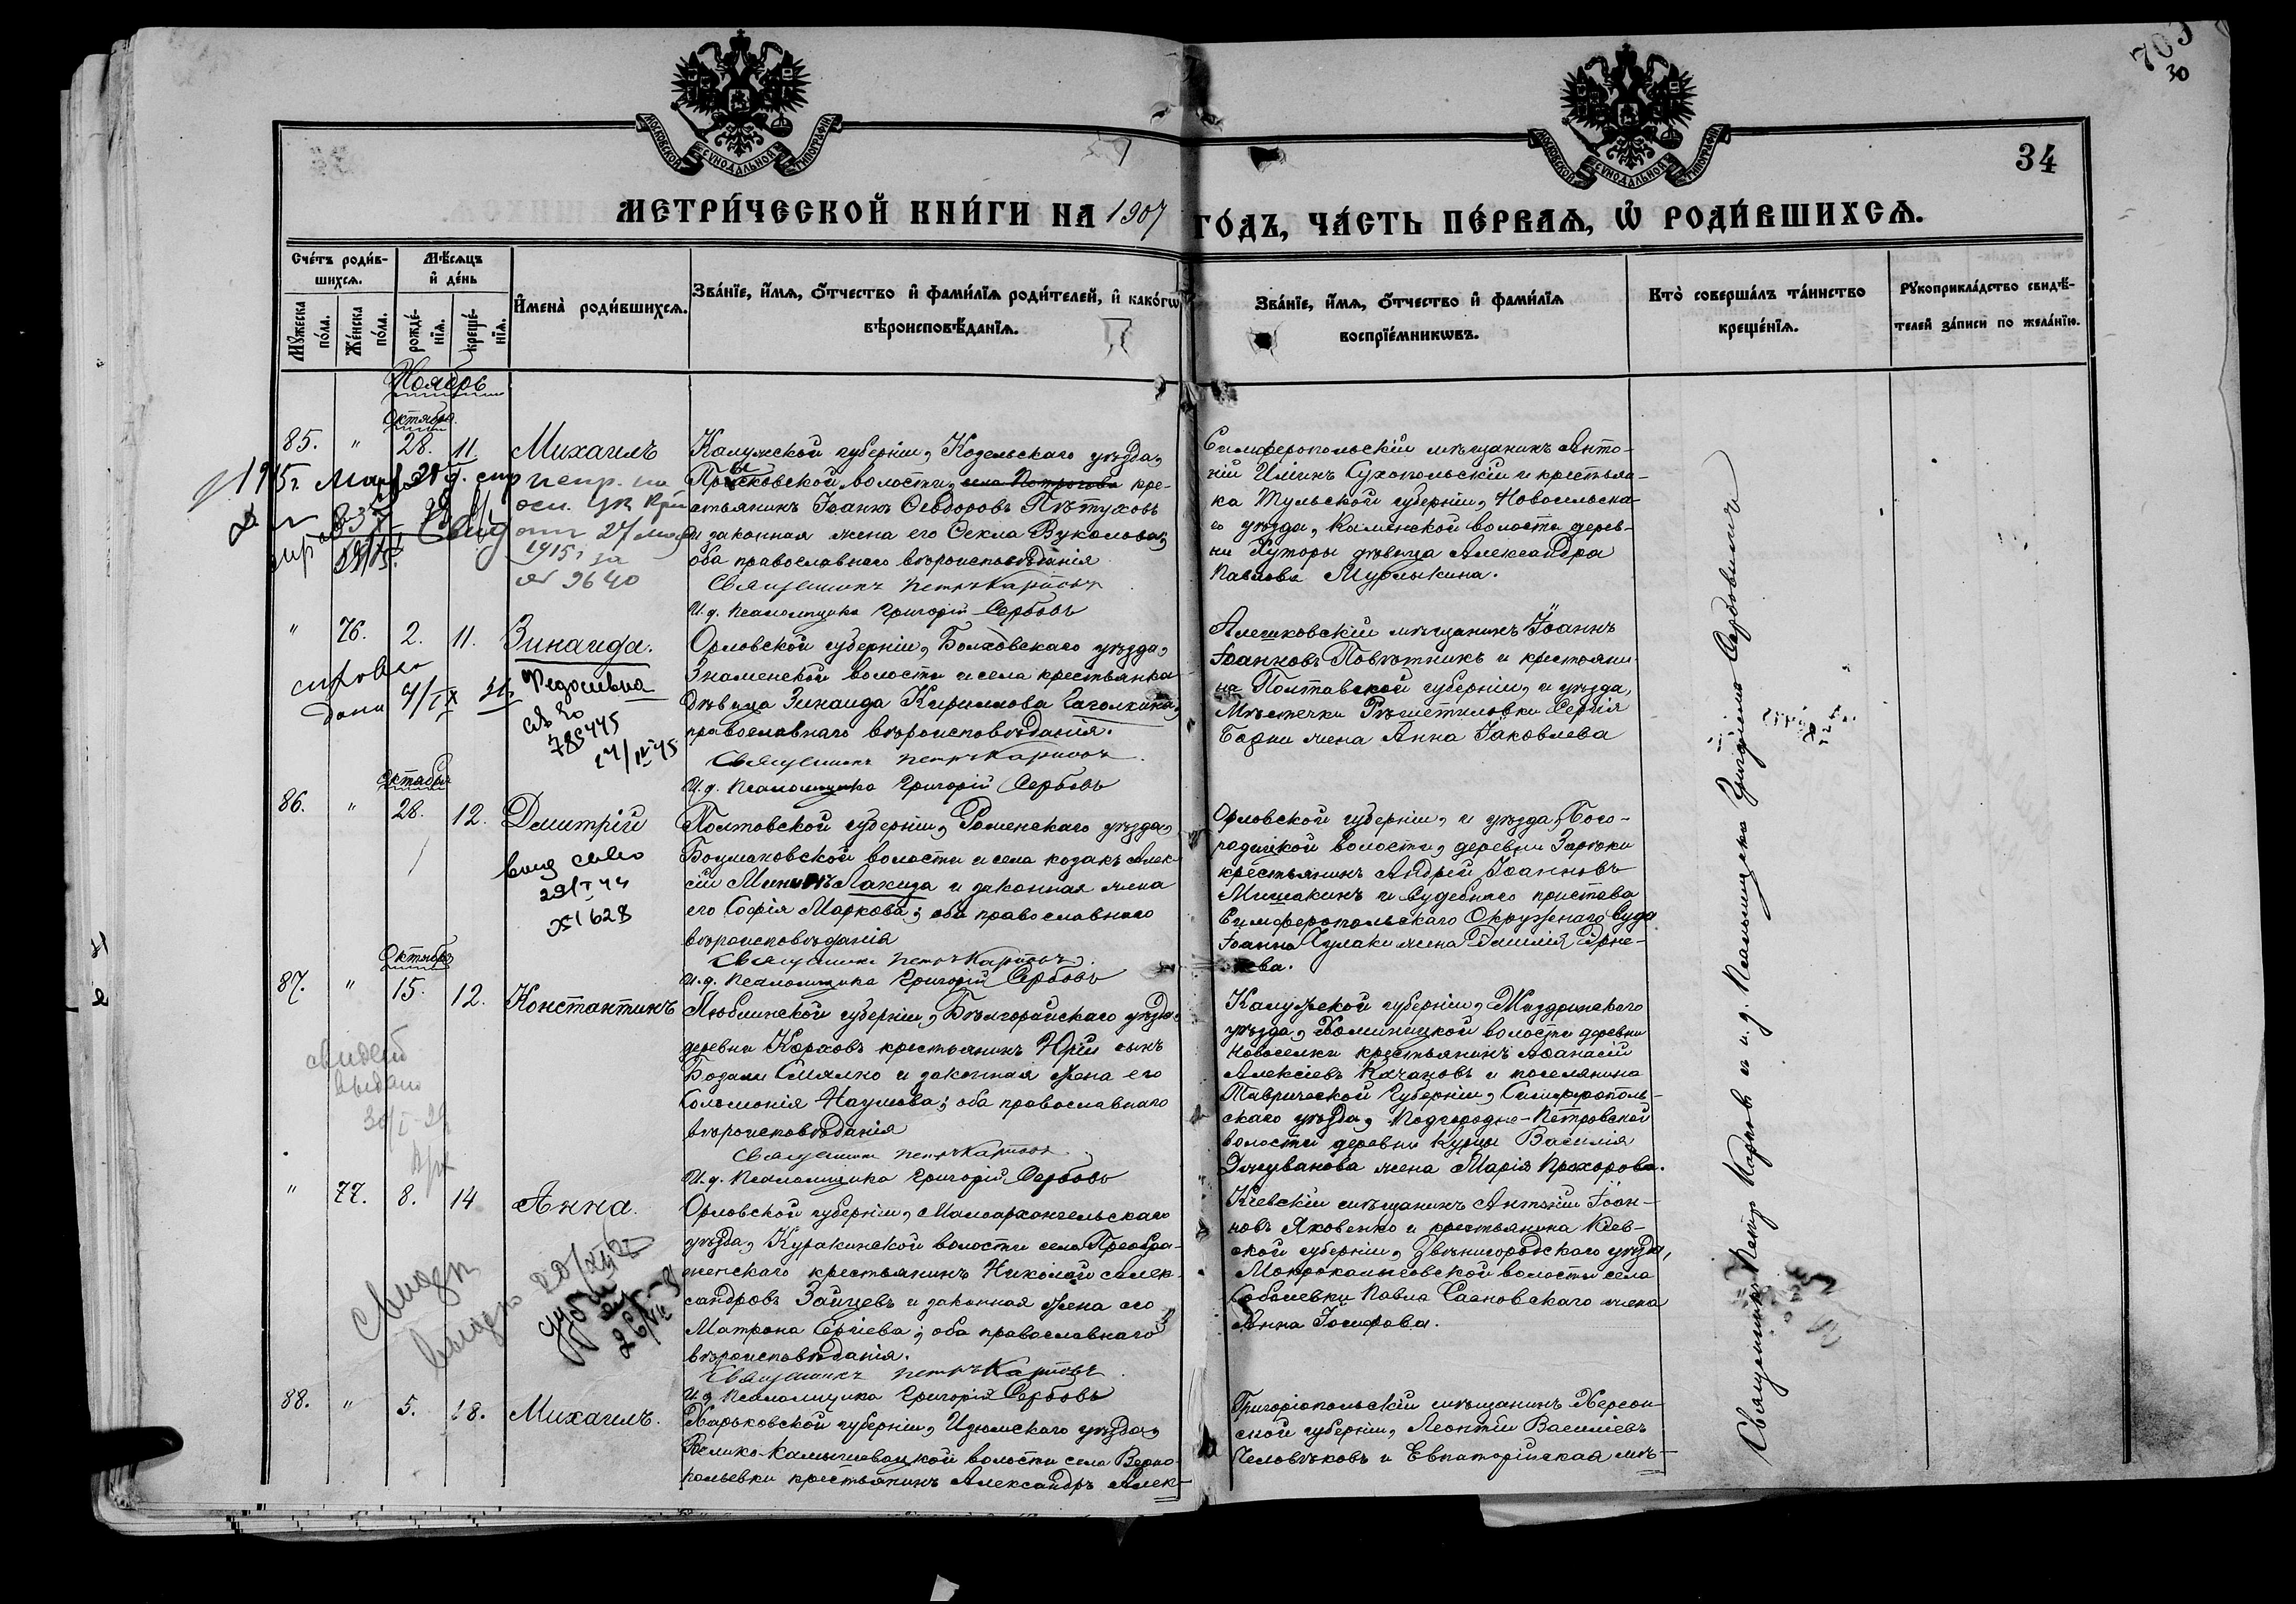 703
30
34
МОСКОВСКОЙ СѴНОДАЛЬНОЙ ТИПОГРАФІИ
МОСКОВСКОЙ СѴНОДАЛЬНОЙ ТИПОГРАФІИ
МЕТРИ́ЧЕСКОЙ КНИ́ГИ НА 1907 ГО́ДЪ, ЧА́СТЬ ПЕ́РВАѦ, Ѡ҆ РОДИ́ВШИХСѦ.
Сче́тъ роди́в-
шихсѧ.
Мѣ́сѧцъ
и҆ де́нь
Мꙋ́жеска по́ла.
Же́нска по́ла.
рожде́-
нїѧ.
креще́-
нїѧ.
И҆мена̀ роди́вшихсѧ.
Зва́нїе, и҆́мѧ, ѻ҆́тчество и҆ фами́лїѧ роди́телей, и҆ како́гѡ
вѣроисповѣ́данїѧ.
Зва́нїе, и҆́мѧ, ѻ҆́тчество и҆ фами́лїѧ
воспрїе́мникѡвъ.
Кто̀ соверша́лъ та́инство
креще́нїѧ.
Рꙋкоприкла́дство свидѣ́-
телей за́писи по жела́нїю.
Ноябрь
Октября
85. " 28. 11. Михаилъ
Калужской губерніи, Козельскаго уѣзда,
волости, кре-
стьянинъ Іоаннъ Ѳеодоровъ Пѣтуховъ
и законная жена его Ѳекла Вуколова;
оба православнаго вѣроисповѣданія
Священникъ Петръ Карповъ
И. д. Псаломщика Григорій Сербовъ
Симферопольскій мѣщанинъ Анто-
ній Ильинъ Сухопольскій и крестьян-
ка Тульской губерніи, Новосильска-
го уѣзда, Каменской волости дерев-
ни Хуторы дѣвица Александра
Павлова Мурлыкина.
1915 г.
27
1915 г. за
№ 9640
" 76. 2. 11. Зинаида.
Федосиевна
785445
Орловской губерніи, Болховскаго уѣзда,
Знаменской волости и села крестьянка
дѣвица Зинаида Кириллова Гаголкина,
православнаго вѣроисповѣданія.
Священникъ Петръ Карповъ
И. д. Псаломщика Григорій Сербовъ
Алешковскій мѣщанинъ Іоаннъ
Іоанновъ Повѣтникъ и крестьяни-
на Полтавской губерніи, и уѣзда,
Мѣстечка Рѣшетиловки Сергія
жена Анна Іаковлева
Октября
86. " 28. 12. Дмитрій
1628
Полтавской губерніи, Роменскаго уѣзда,
волости и села козакъ Алек-
сій Лакиза и законная жена
его Софія Маркова; оба православнаго
вѣроисповѣданія
Священникъ Петръ Карповъ
И. д. Псаломщика Григорій Сербовъ
Орловской губерніи, и уѣзда, Бого-
родицкой волости, деревни
крестьянинъ Андрей Іоанновъ
Мишакинъ и Судебнаго пристава
Симферопольскаго Окружнаго Суда
Іоанна жена
Октября
87. " 15. 12. Константинъ
Люблинской губерніи, Бѣлгорайскаго уѣзда,
деревни Корховъ крестьянинъ Юрій сынъ
и законная жена его
Соломонія Наумова; оба православнаго
вѣроисповѣданія
Священникъ Петръ Карповъ
И. д. Псаломщика Григорій Сербовъ
Калужской губерніи, Жиздринскаго
уѣзда, волости деревни
Новоселки крестьянинъ Аѳанасій
Алексіевъ Качановъ и поселянина
Таврической губерніи, Симферополь-
скаго уѣзда, Подгородне-Петровской
волости деревни Курцы Василія
жена Марія Прохорова.
" 77. 8. 14 Анна.
Орловской губерніи, Малоархангельскаго
уѣзда, Куракинской волости села Преобра-
женскаго крестьянинъ Николай Алек-
сандровъ Зайцевъ и законная жена его
Матрона Сергіева; оба православнаго
вѣроисповѣданія.
Священникъ Петръ Карповъ
И. д. Псаломщика Григорій Сербовъ
Кіевскій мѣщанинъ Антоній Іоан-
новъ Яковенко и крестьянина Кіев-
ской губерніи, Звенигородскаго уѣзда,
Мокрокалыгорской волости села
Соболевки Павла жена
Анна Іосифова.
88. " 5. 18. Михаилъ.
Харьковской губерніи, Изюмскаго уѣзда,
Велико-Камышевацкой волости села Верно-
польевки крестьянинъ Александръ Алек-
Григоріопольскій мѣщанинъ Херсон-
ской губерніи, Леонтій Василіевъ
Человѣковъ и Евпаторійская мѣ-
Священникъ Петръ Карповъ и и. д. Псаломщика Григорій Сербовъ